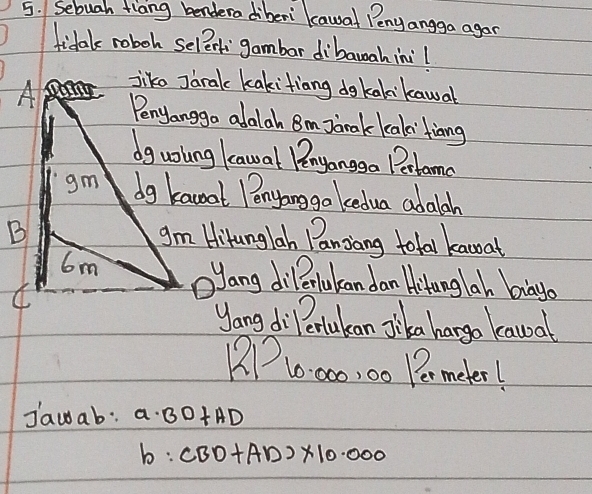 5. Sebuah tiang bendera diberi kawat Penyangga agar
tidak roboh seperti gambar dibawah ini !
A
Jika Jarak kaki tiang dg kaki kawat
Penyangga adalah 8m Jarak kaki tiang
dg ujung kawat Penyangga Pertama
9m
dg kawat Penyangga kedua adalah
B
9m Hitunglah Panjang total kawat
6m
C
D
yang diperlukan dan Hitunglah biaya
yang diperlukan Jika harga kawat
RP 10.000,00 Per meter !
Jawab : a. BD + AD
b : (BD + AD) x 10.000